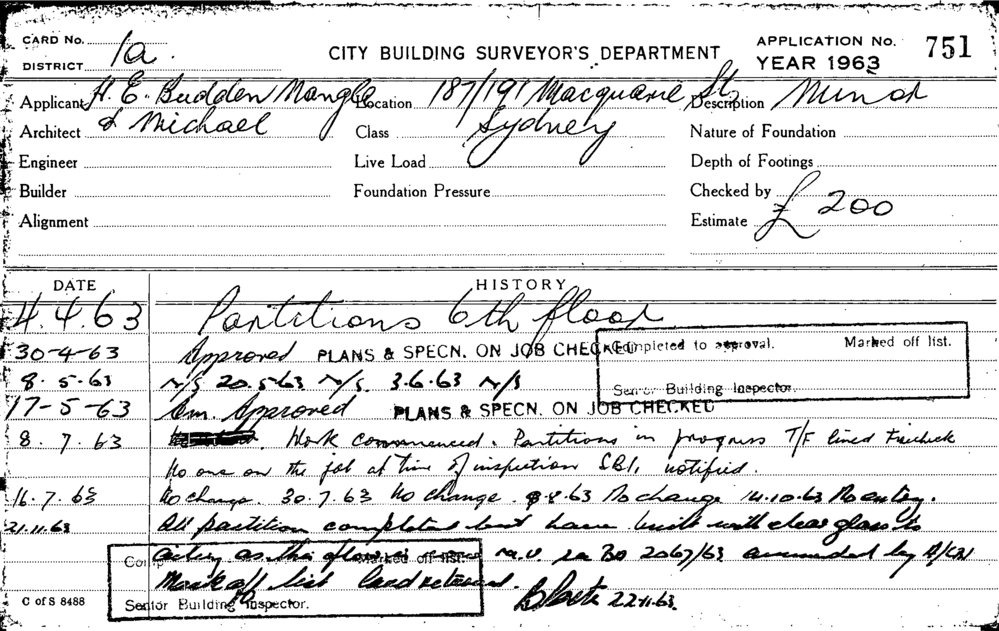 CARD No. 1a.
DISTRICT
CITY BUILDING SURVEYOR'S DEPARTMENT
APPLICATION No. 751
YEAR 1963
Applicant H. E. Budden Nangle Location 187/191 Macquarie St, Description Minor
Architect & Michael Class Sydney Nature of Foundation
Engineer Live Load Depth of Footings
Builder Foundation Pressure Checked by
Alignment Estimate £ 200
DATE HISTORY
4.4.63 Partitions 6th floor
30-4-63 Approved PLANS & SPECN. ON JOB CHECKED Completed to approval. Marked off list.
8.5.63 N/S 20.5.63 N/S. 3.6.63 N/S Senior Building Inspector.
17-5-63 Am. Approved PLANS & SPECN. ON JOB CHECKED
8.7.63 Work commenced. Partitions in progress T/F lined
No one on the job at time of inspection SBI, notified.
16.7.63 No change. 30.7.63 No change. 8.63 No change 14.10.63 No entry.
21.11.63 All partition completed but have built with clear glass to
as this 2067/63 amended by
Mark off list Card returned.
Marked off list.
Senior Building Inspector.
22.11.63.
C of S 8488